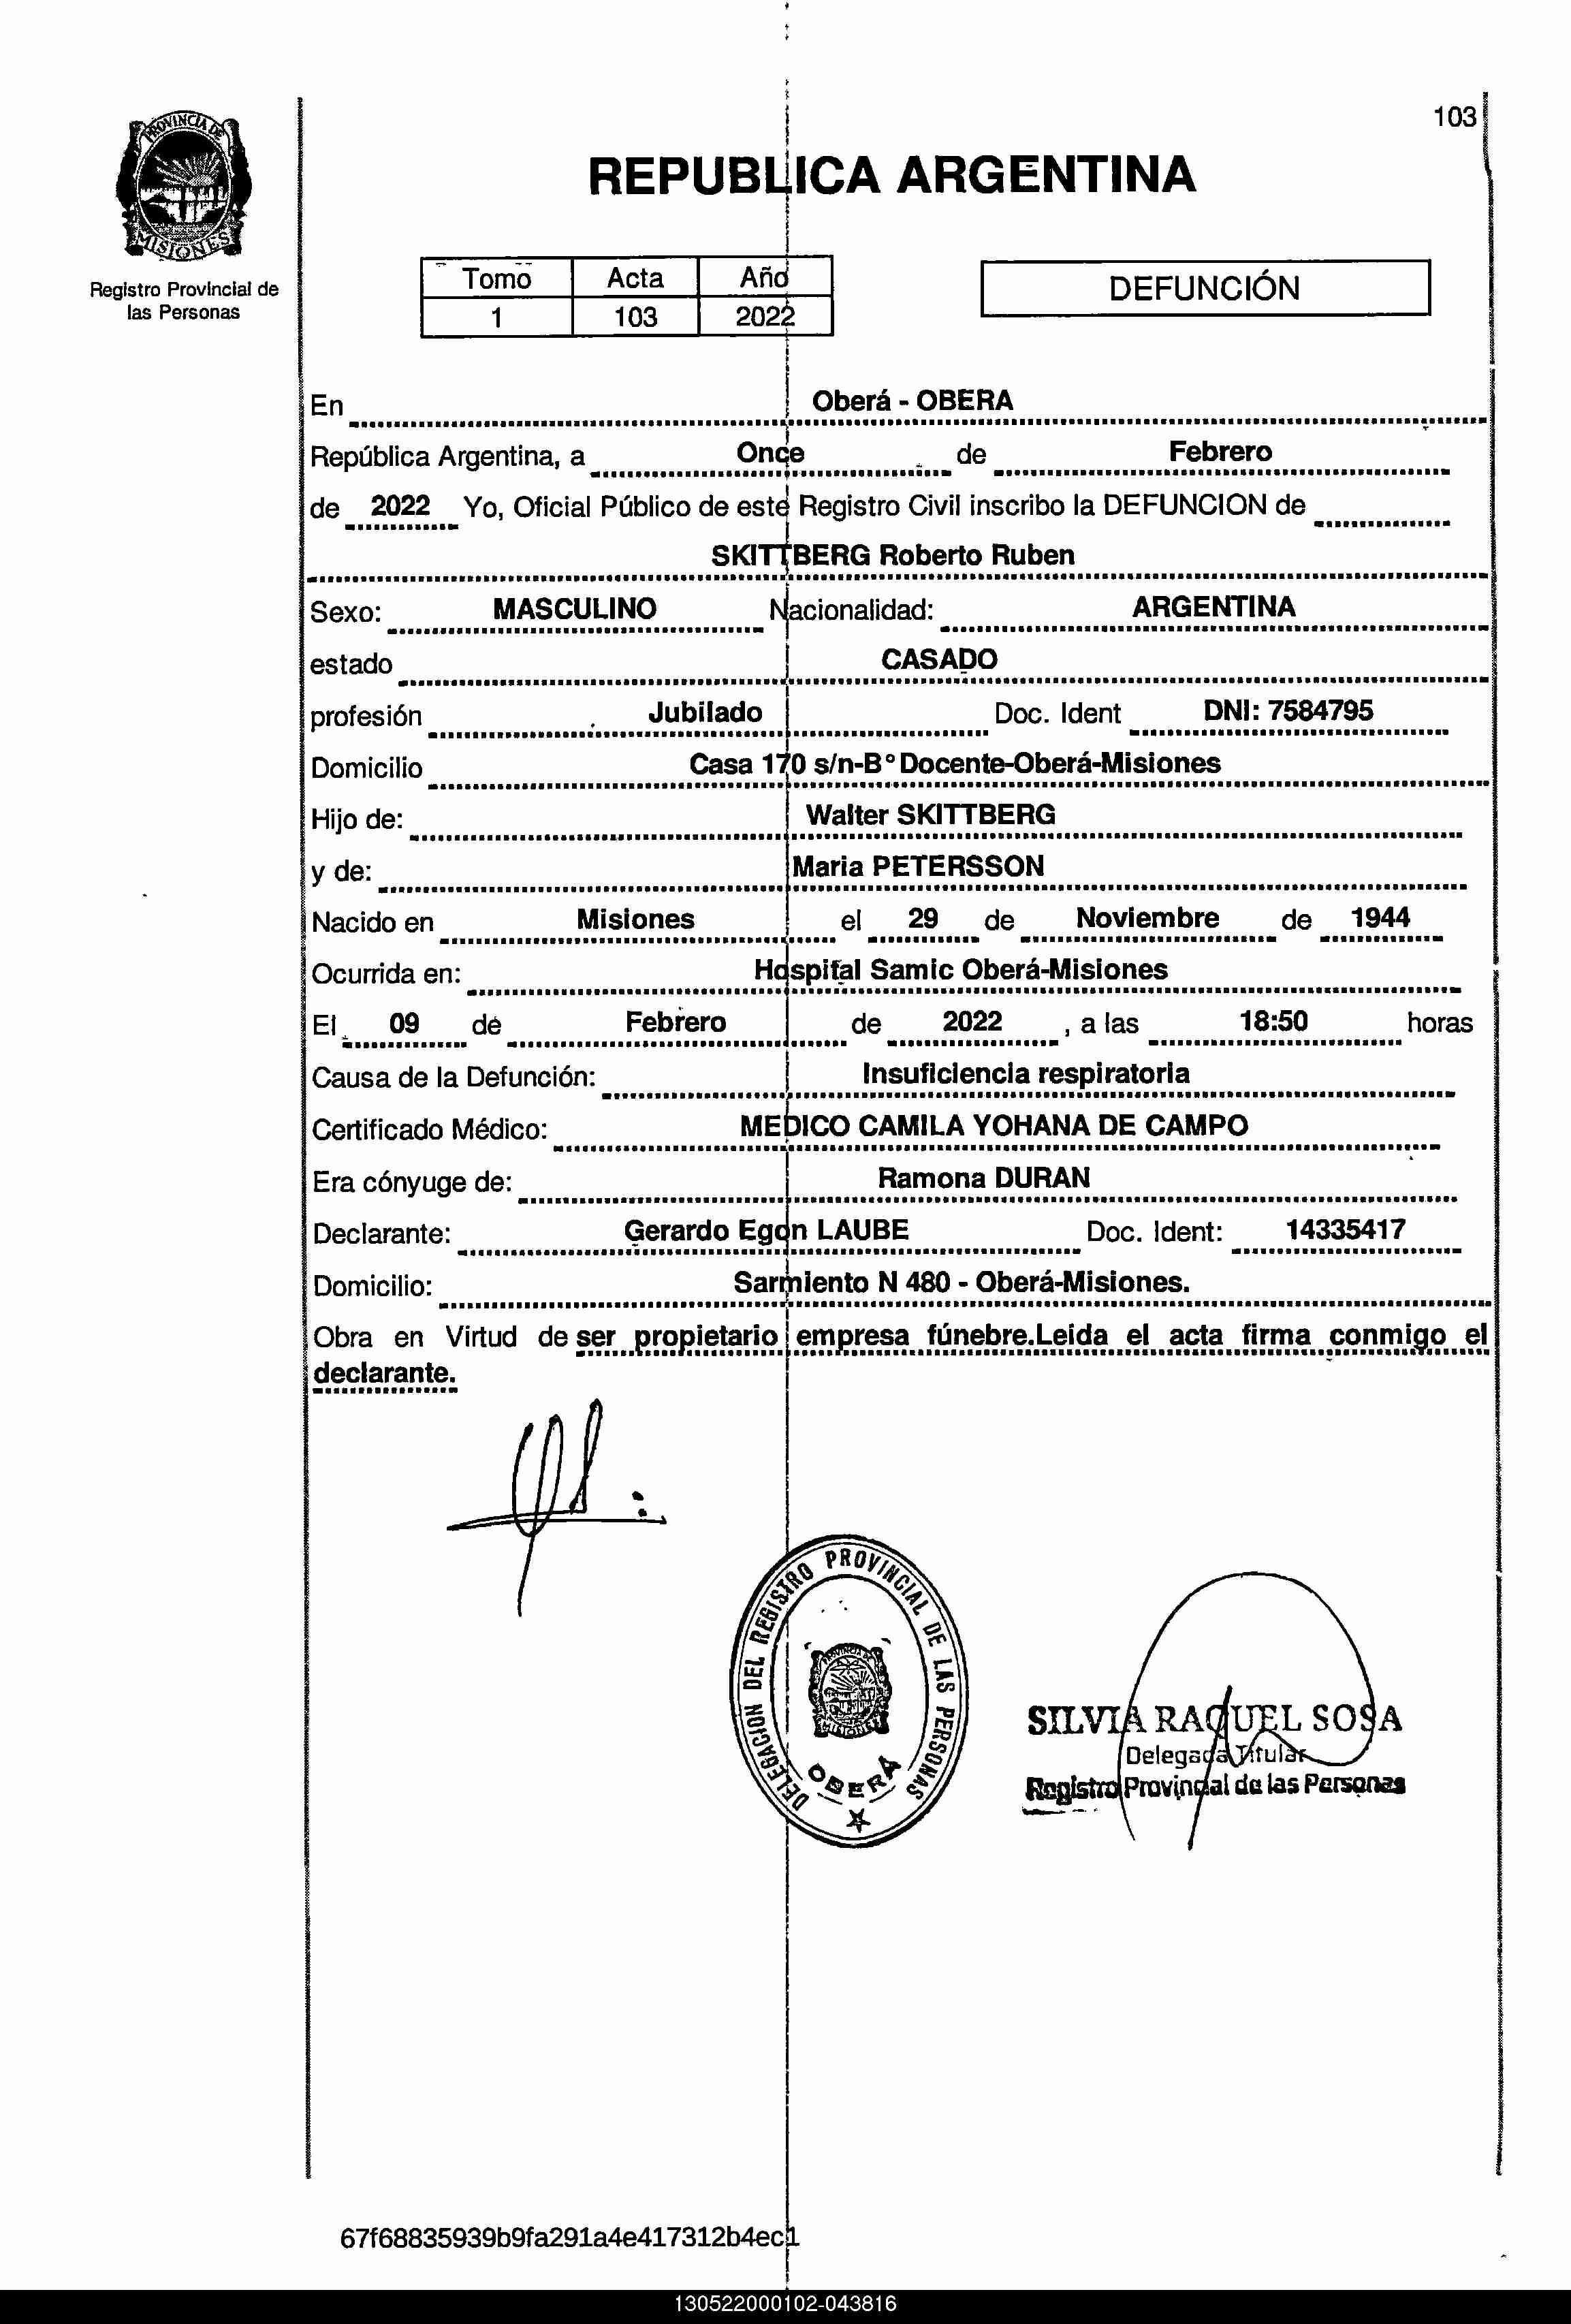 103
PROVINCIA DE
MISIONES
Registro Provincial de
las Personas
REPUBLICA ARGENTINA
Tomo Acta Año
1 103 2022
DEFUNCIÓN
En Oberá - OBERA
República Argentina, a Once de Febrero
de 2022 Yo, Oficial Público de este Registro Civil inscribo la DEFUNCION de
SKITTBERG Roberto Ruben
Sexo: MASCULINO Nacionalidad: ARGENTINA
estado CASADO
profesión Jubilado Doc. Ident DNI: 7584795
Domicilio Casa 170 s/n-B° Docente-Oberá-Misiones
Hijo de: Walter SKITTBERG
y de: Maria PETERSSON
Nacido en Misiones el 29 de Noviembre de 1944
Ocurrida en: Hospital Samic Oberá-Misiones
El 09 de Febrero de 2022 , a las 18:50 horas
Causa de la Defunción: Insuficiencia respiratoria
Certificado Médico: MEDICO CAMILA YOHANA DE CAMPO
Era cónyuge de: Ramona DURAN
Declarante: Gerardo Egon LAUBE Doc. Ident: 14335417
Domicilio: Sarmiento N 480 - Oberá-Misiones.
Obra en Virtud de ser propietario empresa fúnebre.Leida el acta firma conmigo el
declarante.
DELEGACION DEL REGISTRO PROVINCIAL DE LAS PERSONAS
PROVINCIA DE
MISIONES
OBERÁ
SILVIA RAQUEL SOSA
Delegada Titular
Registro Provincial de las Personas
67f68835939b9fa291a4e417312b4ec1
130522000102-043816